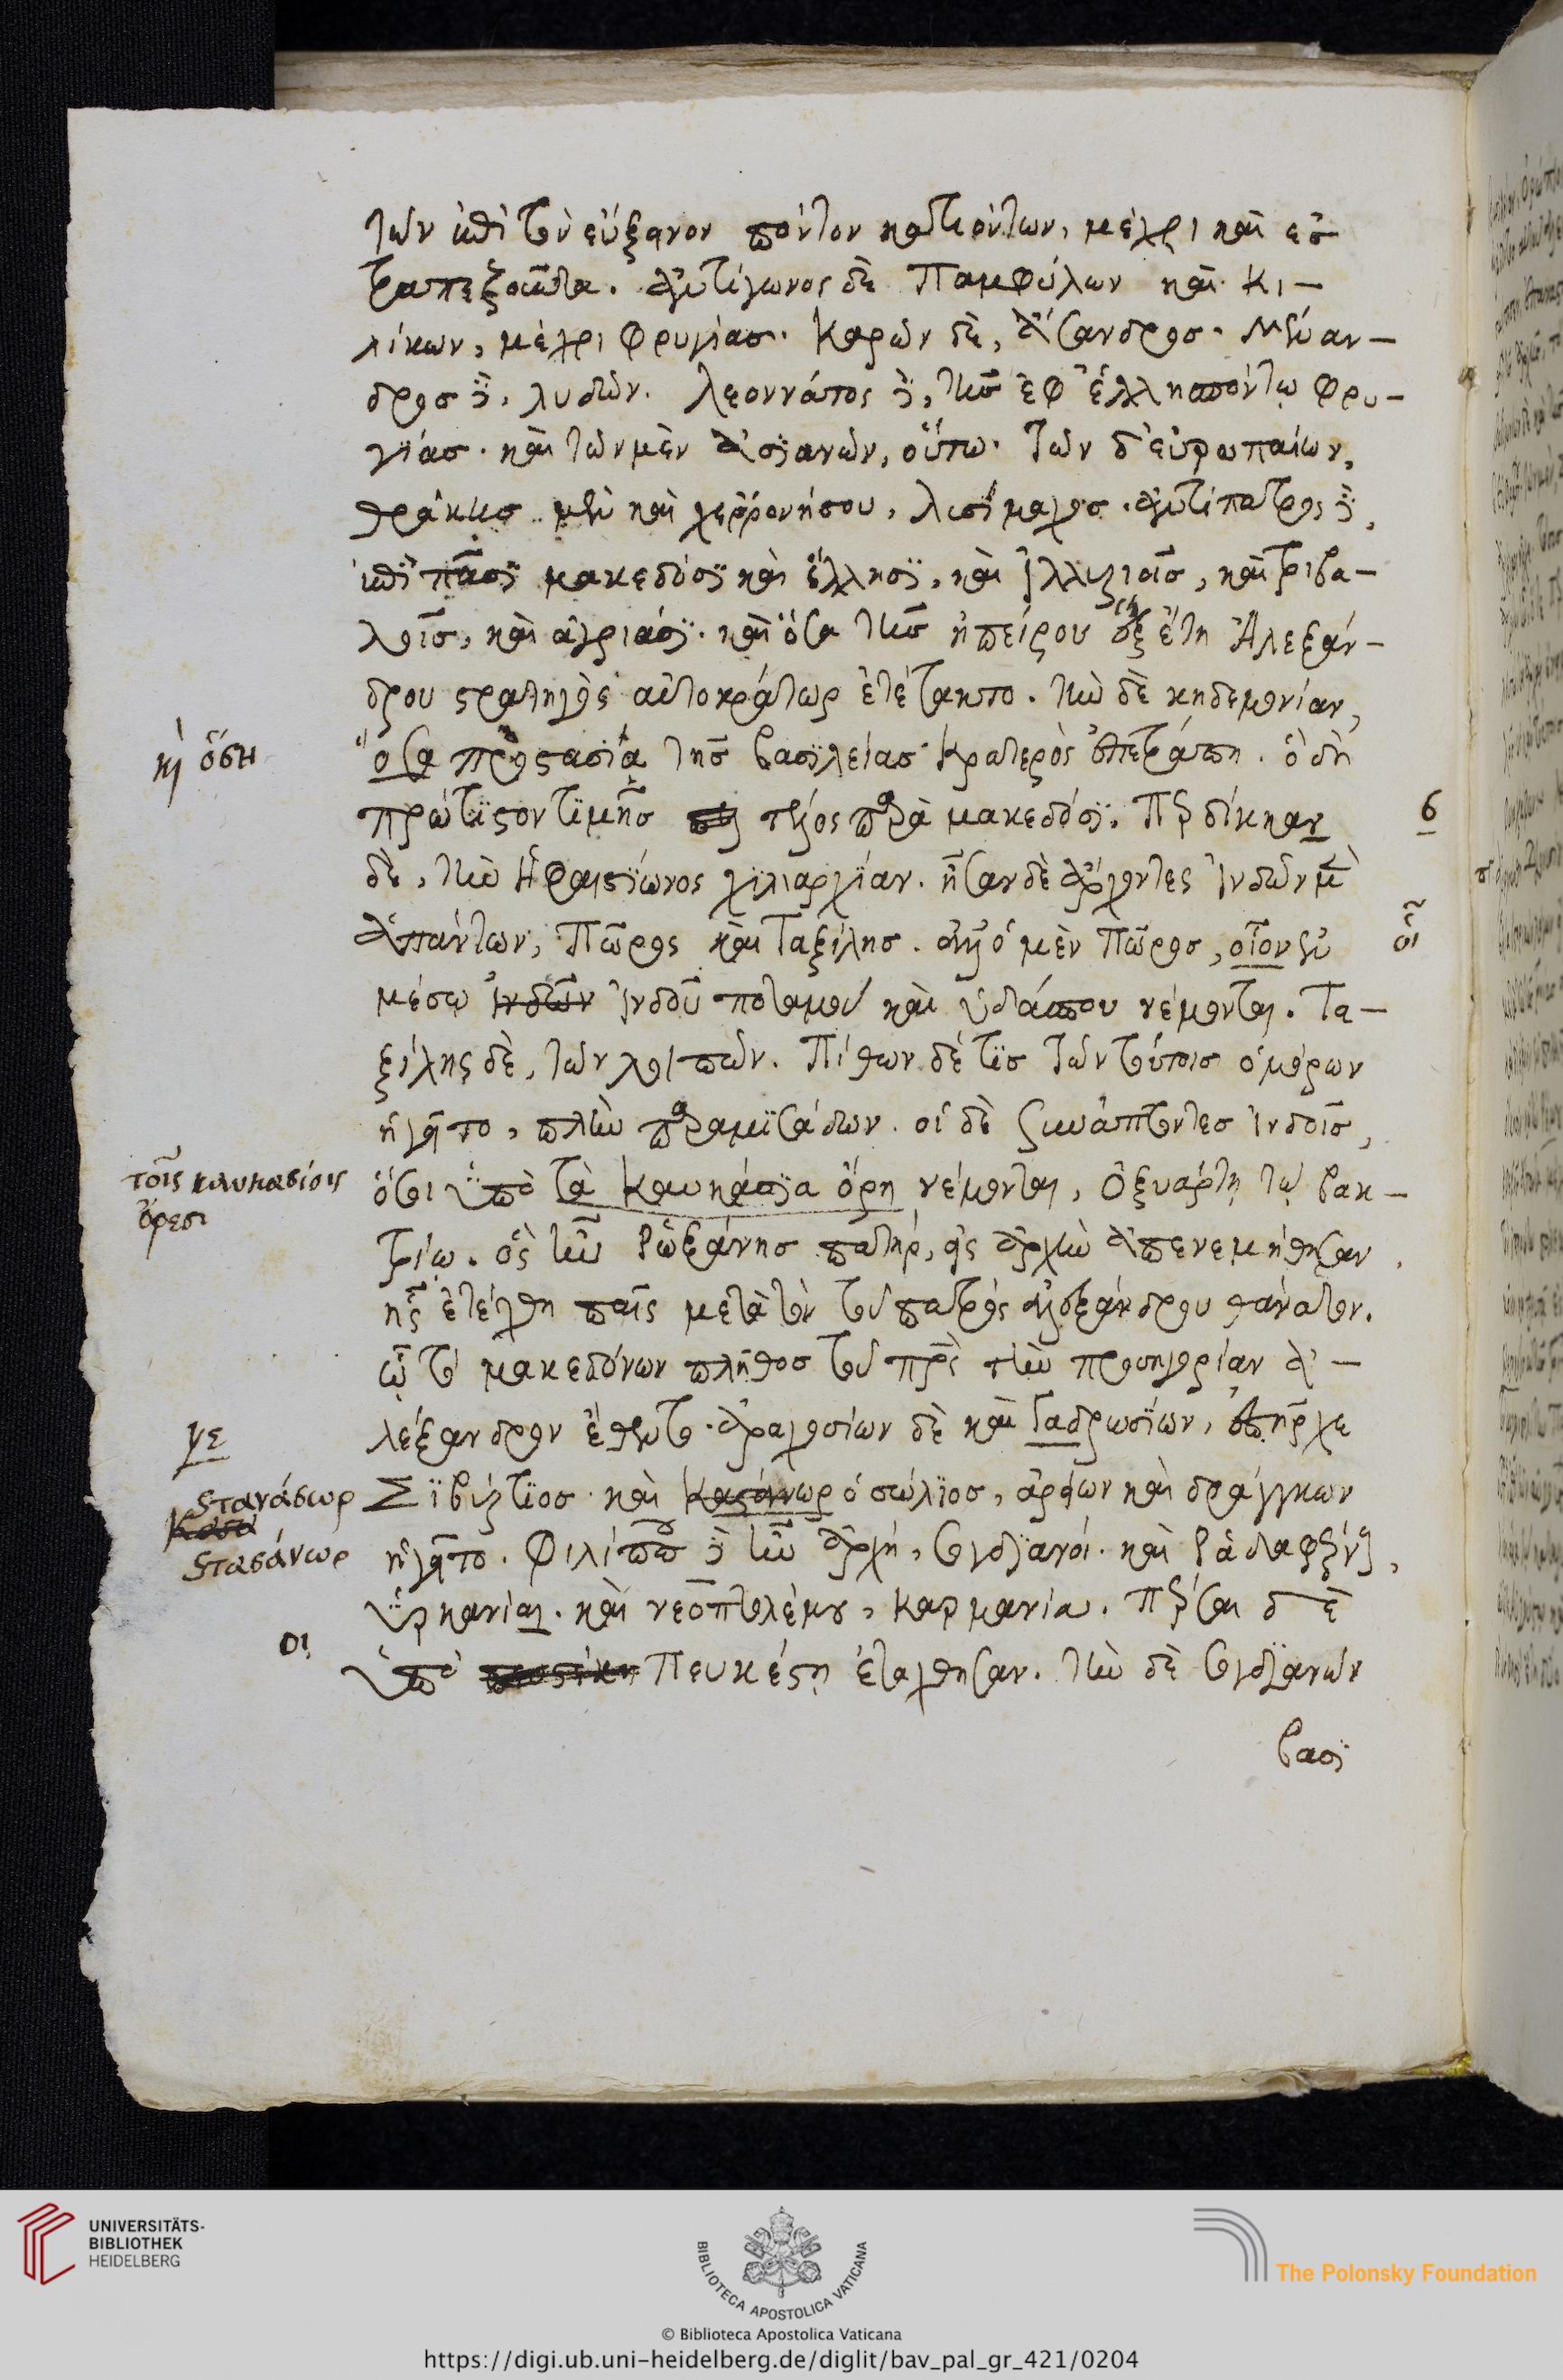 τῶν ἐπὶ τὸν εὔξεινον πόντον κατιόντων, μέχρι καὶ εἰς
τραπεζοῦντα. ἀντίγονος δὲ Παμφύλων καὶ Κι–
λίκων, μέχρι Φρυγίας. Καρῶν δὲ, Ἄσανδρος. Μέναν–
δρος δὲ, λυδῶν. Λεοννάτος δὲ, τῆς ἐφ' ἑλλησπόντῳ Φρυ–
γίας. καὶ τῶν μὲν ἀσϊανῶν, οὕτω. τῶν δ' εὐρωπαίων,
θράκης μὲν καὶ χερρονήσου, λυσίμαχος. ἀντίπατρος δὲ,
ἐπὶ πᾶσϊ μακεδόσϊ καὶ ἕλλησϊ, καὶ ἰλλυριοῖς, καὶ τριβα–
λοῖς, καὶ ἀγριάσϊ. καὶ ὅσα τῆς ἠπείρου ἐξέτι Ἀλεξάν–
δρου στρατηγὸς αὐτοκράτωρ ἐτέτακτο. τὴν δὲ κηδεμονίαν,
ἢ ὅση
ὅσα προστασία τῆς βασϊλείας Κρατερὸς ἐπετράπη. ὃ δὴ
πρώτϊστον τϊμῆς τέλος παρὰ μακεδόσϊ. Περδίκκαν
δὲ, τὴν Ἡφαιστϊωνος χϊλιαρχίαν. ἦσαν δὲ ἄρχοντες Ἰνδῶν μὲν
ἁπάντων, Πῶρος καὶ Ταξίλης. ἀλλ' ὁ μὲν Πῶρος, οἷον ἐν
οἳ
μέσῳ ἰνδῶν Ἰνδοῦ ποταμοῦ καὶ ὑδάσπου νέμονται. Τα–
ξίλης δὲ, τῶν λοιπῶν. Πίθων δέ τϊς τῶν τούτοις ὁμόρων
ἡγεῖτο, πλὴν παραμϊσάδων. οἱ δὲ συνάπτοντες ἰνδοῖς,
τοῖς καυκασίοις
ὄρεσι
ὅσοι ὑπὸ τὰ Καυκάσϊα ὄρη νέμονται, Ὀξυάρτῃ τῷ βακ–
τρίῳ. ὃς ἦν Ῥωξάνης πατὴρ, εἰς ἀρχὴν ἀπενεμήθησαν,
ἧς ἐτέχθη παῖς μετὰ τὸν τοῦ πατρὸς ἀλεξάνδρου θάνατον.
ᾧ τὸ μακεδόνων πλῆθος τοῦ πατρὸς τὴν προσηγορίαν ἀ–
λέξανδρον ἔθεντο. ἀραχοσίων δὲ καὶ Γαδρωσϊων, ὑπῆρχε
γε
Στανάσωρ
Κασα
Στασάνωρ
Σϊβύρτϊος. καὶ Κασάνωρ ὁ σώλϊος, ἀρείων καὶ δράγγκων
ἡγεῖτο. Φιλίππου δὲ ἦν ἀρχὴ, σογδϊανοί. καὶ Ῥαδαφέρνης,
ὑρκανίαι. καὶ νεοπτολέμου, καρμανία. Πέρσαι δὲ
οι
ὑπὸ Πευκέστῃ ἐτάχθησαν. τὴν δὲ σογδϊανῶν
βασϊ
UNIVERSITÄTS-
BIBLIOTHEK
HEIDELBERG
BIBLIOTECA APOSTOLICA VATICANA
The Polonsky Foundation
© Biblioteca Apostolica Vaticana
https://digi.ub.uni-heidelberg.de/diglit/bav_pal_gr_421/0204